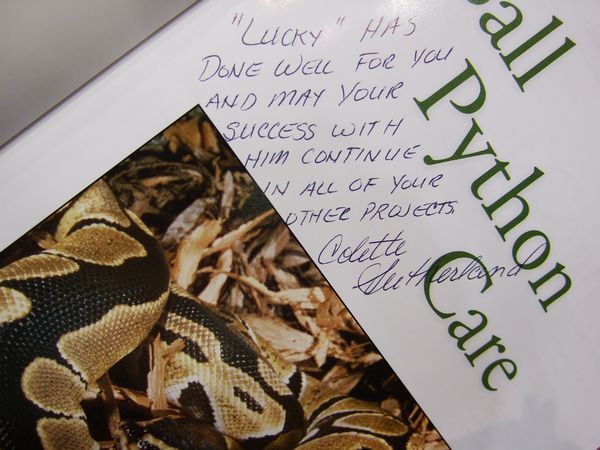 "LUCKY" HAS
DONE WELL FOR YOU
AND MAY YOUR
SUCCESS WITH
HIM CONTINUE
IN ALL OF YOUR
OTHER PROJECTS.
Colette
Sutherland
Ball
Python
Care